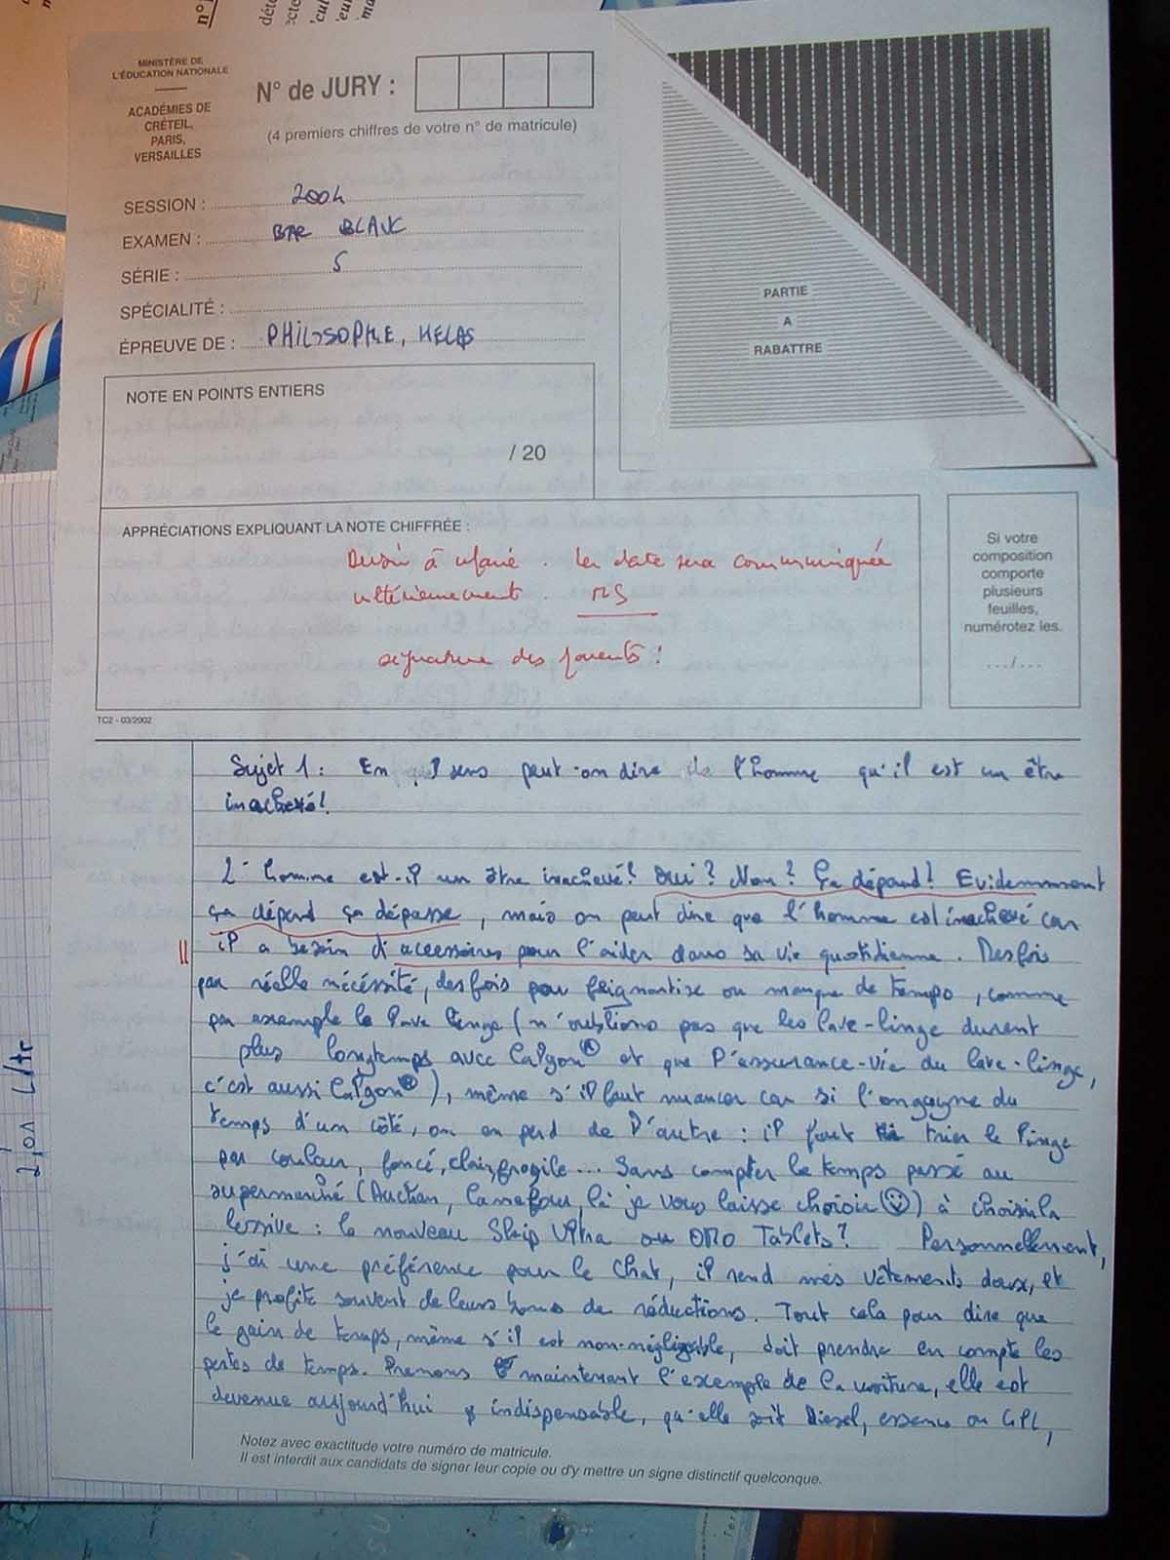 MINISTÈRE DE
L'ÉDUCATION NATIONALE
ACADÉMIES DE
CRÉTEIL,
PARIS,
VERSAILLES
N° de JURY :
(4 premiers chiffres de votre n° de matricule)
SESSION : 2004
EXAMEN : BAC BLANC
SÉRIE : S
SPÉCIALITÉ :
ÉPREUVE DE : PHILOSOPHIE, HELAS
PARTIE
A
RABATTRE
NOTE EN POINTS ENTIERS
/ 20
APPRÉCIATIONS EXPLIQUANT LA NOTE CHIFFRÉE :
Devoir à refaire. La date sera communiquée
ultérieurement. RS
signature des parents !
Si votre
composition
comporte
plusieurs
feuilles,
numérotez les.
.../...
TC2 - 03/2002
Sujet 1 : En quel sens peut-on dire de l'homme qu'il est un être
inachevé ?
L'homme est-il un être inachevé ? Oui ? Non ? Ça dépend ! Evidemmment
ça dépend ça dépasse, mais on peut dire que l'homme est inachevé car
il a besoin d'accessoires pour l'aider dans sa vie quotidienne. Des fois
par réelle nécessité, des fois pour feignantise ou manque de temps, comme
par exemple le lave linge (n'oublions pas que les lave-linge durent
plus longtemps avec Calgon® et que l'assurance-vie du lave-linge,
c'est aussi Calgon®), même s'il faut nuancer car si l'on gagne du
temps d'un côté, on en perd de l'autre : il faut trier le linge
par couleur, foncé, clair, fragile... Sans compter le temps passé au
supermarché (Auchan, Carrefour, là je vous laisse choisir ☺) à choisir la
lessive : le nouveau Skip Ultra ou OMO Tablets ? Personnellement,
j'ai une préférence pour le Chat, il rend mes vêtements doux, et
je profite souvent de leurs bons de réductions. Tout cela pour dire que
le gain de temps, même s'il est non-négligeable, doit prendre en compte les
pertes de temps. Prenons maintenant l'exemple de la voiture, elle est
devenue aujourd'hui indispensable, qu'elle soit Diesel, essence ou GPL,
Notez avec exactitude votre numéro de matricule.
Il est interdit aux candidats de signer leur copie ou d'y mettre un signe distinctif quelconque.